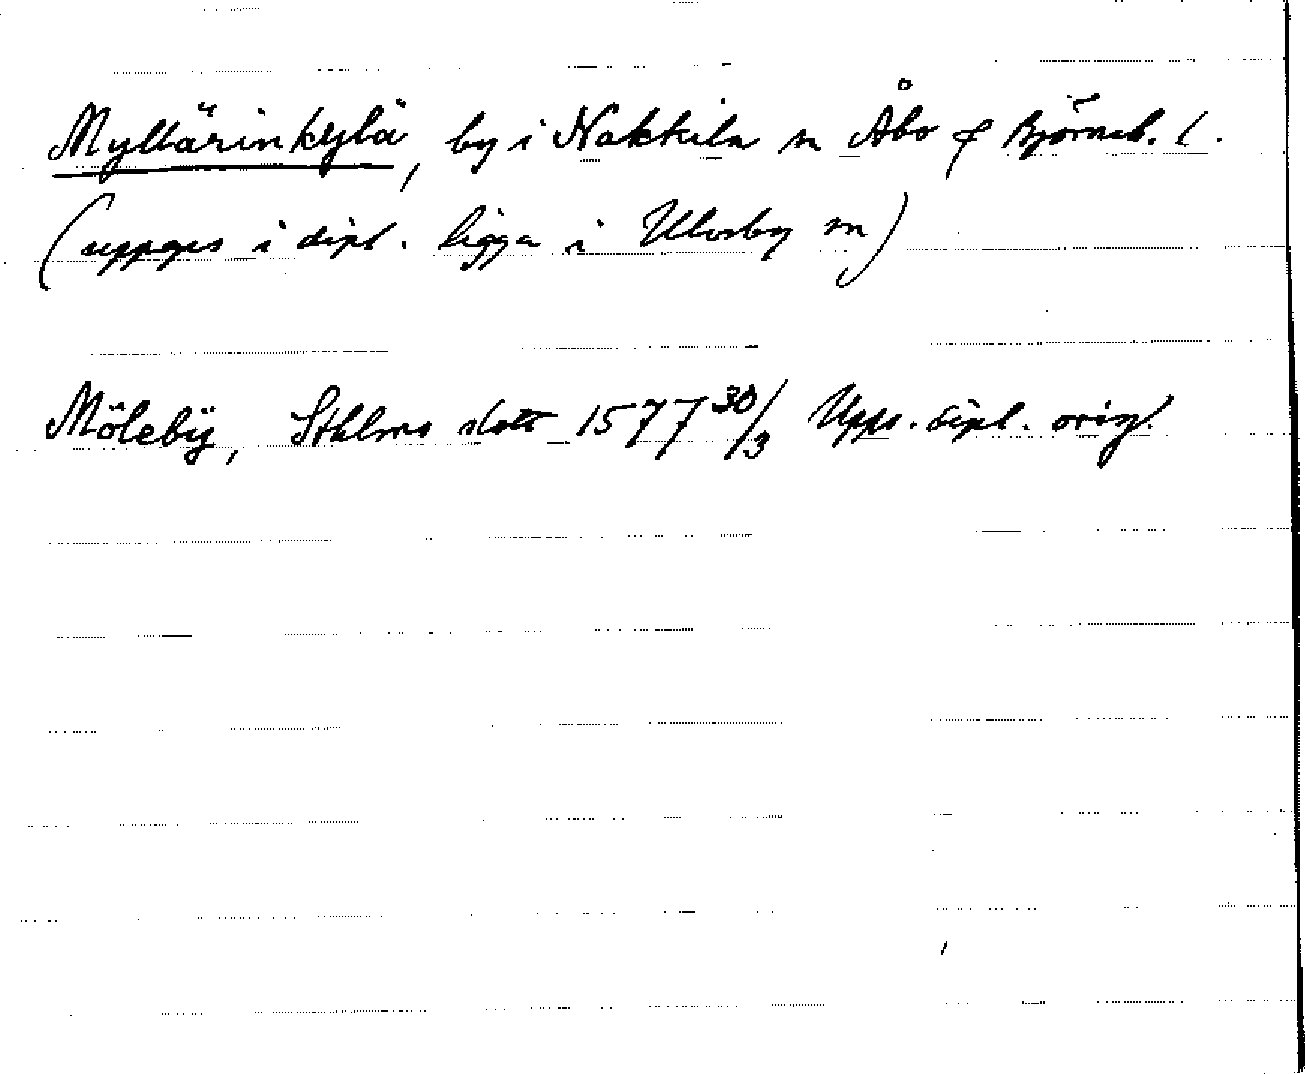 Myllärinkylä, by i Nakkila sn Åbo & Björneb. l.
(uppges i dipl. ligga i Ulvsby sn)
Möleby, Sthlms slott 1577 30/3 Upps. dipl. orig.